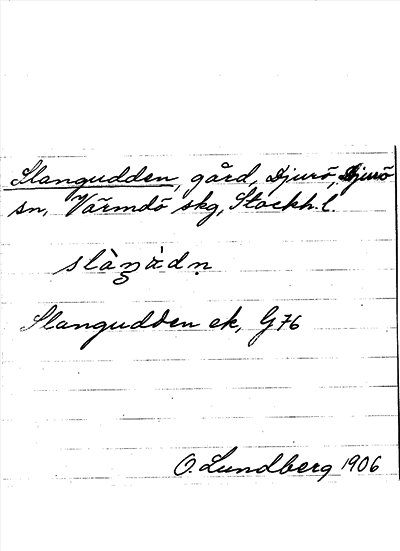 Slangudden, gård, Djurö, Djurö
sn, Värmdö skg, Stockh.l.
slàŋàdn̥
Slangudden ek, G76
O. Lundberg 1906